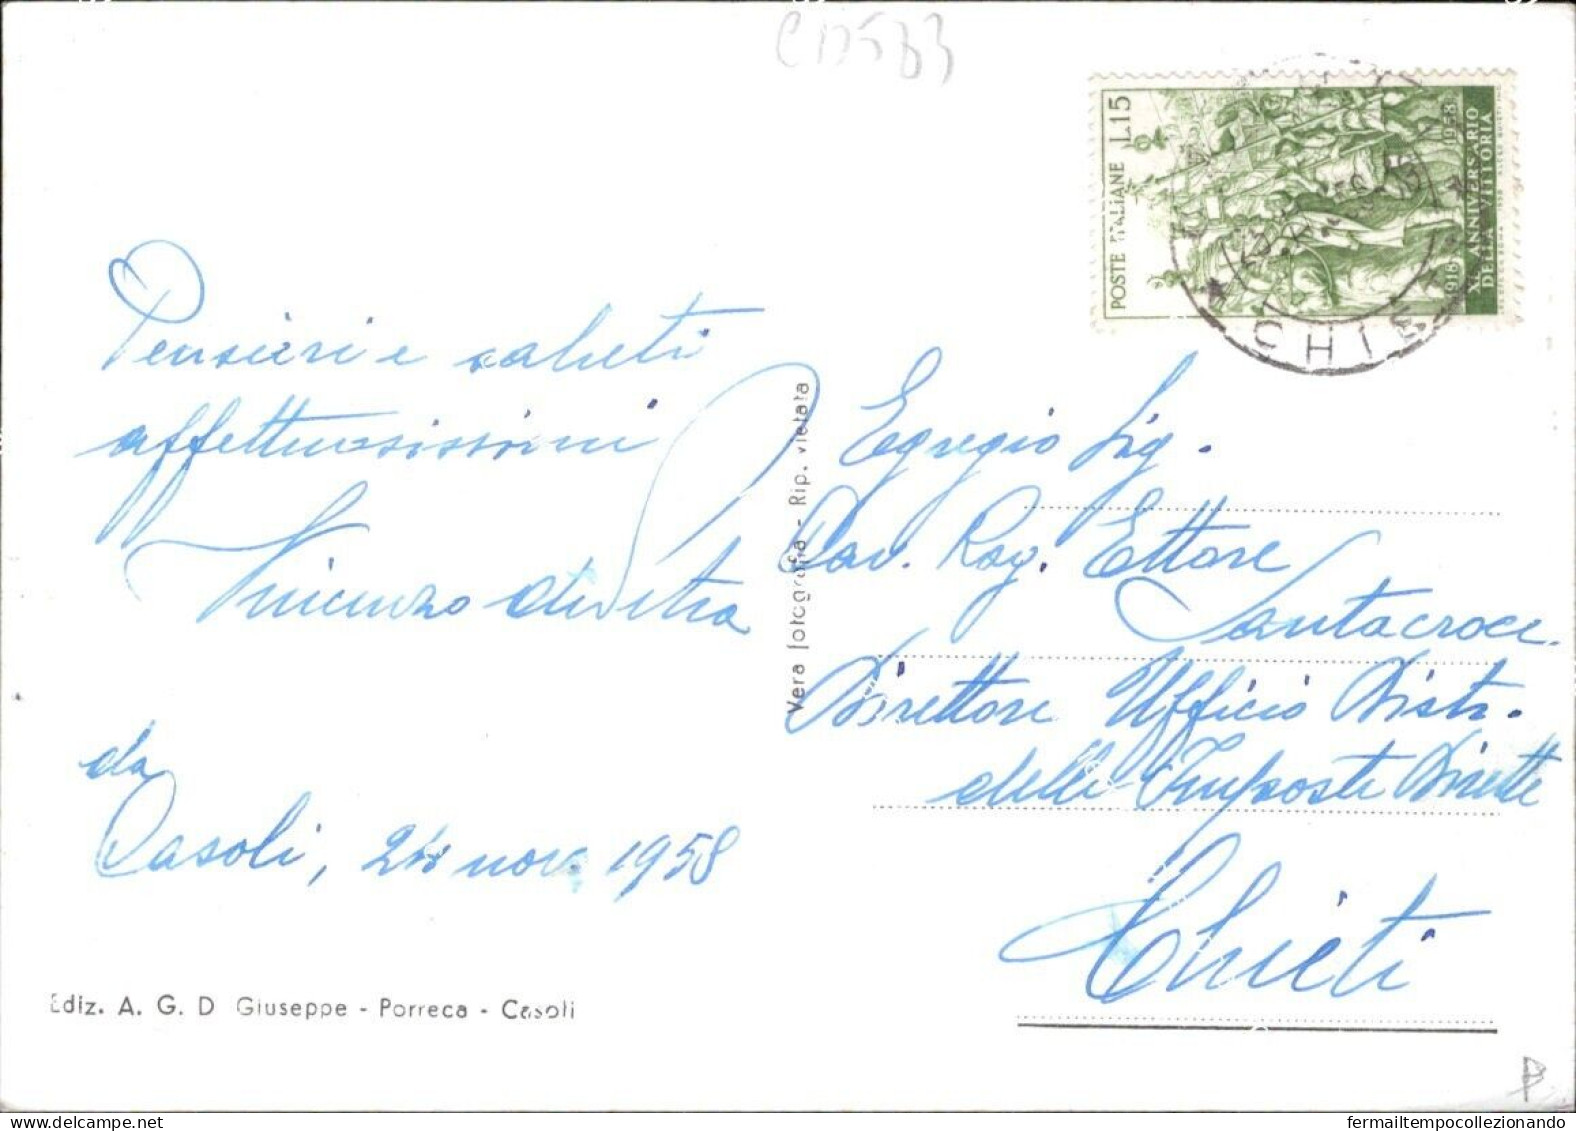 CD583
POSTE ITALIANE L.15
1918 1958
XL ANNIVERSARIO
DELLA VITTORIA
CHIETI
Pensieri e saluti
affettuosissimi
Vincenzo
da
Casoli, 24 nov. 1958
Ediz. A. G. D Giuseppe - Porreca - Casoli
Vera fotografia - Rip. vietata
Egregio Sig.
Cav. Rag. Ettore
Santacroce
Direttore Ufficio Distr.
delle Imposte Dirette
Chieti
fermailtempocollezionando